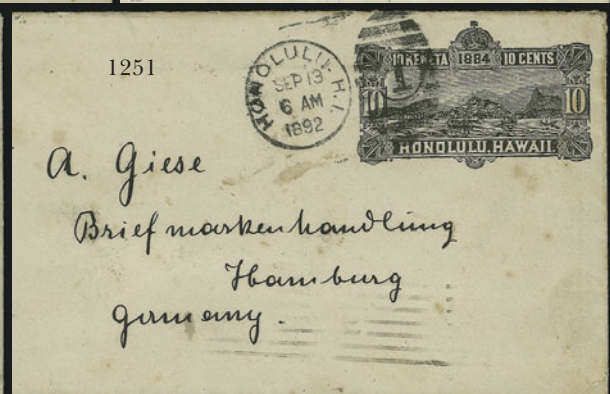 1251
HONOLULU H.I.
SEP 13
6 AM
1892
10 KENETA 1884 10 CENTS
1
10 10
HONOLULU, HAWAII.
A. Giese
Briefmarkenhandlung
Hamburg
Germany.